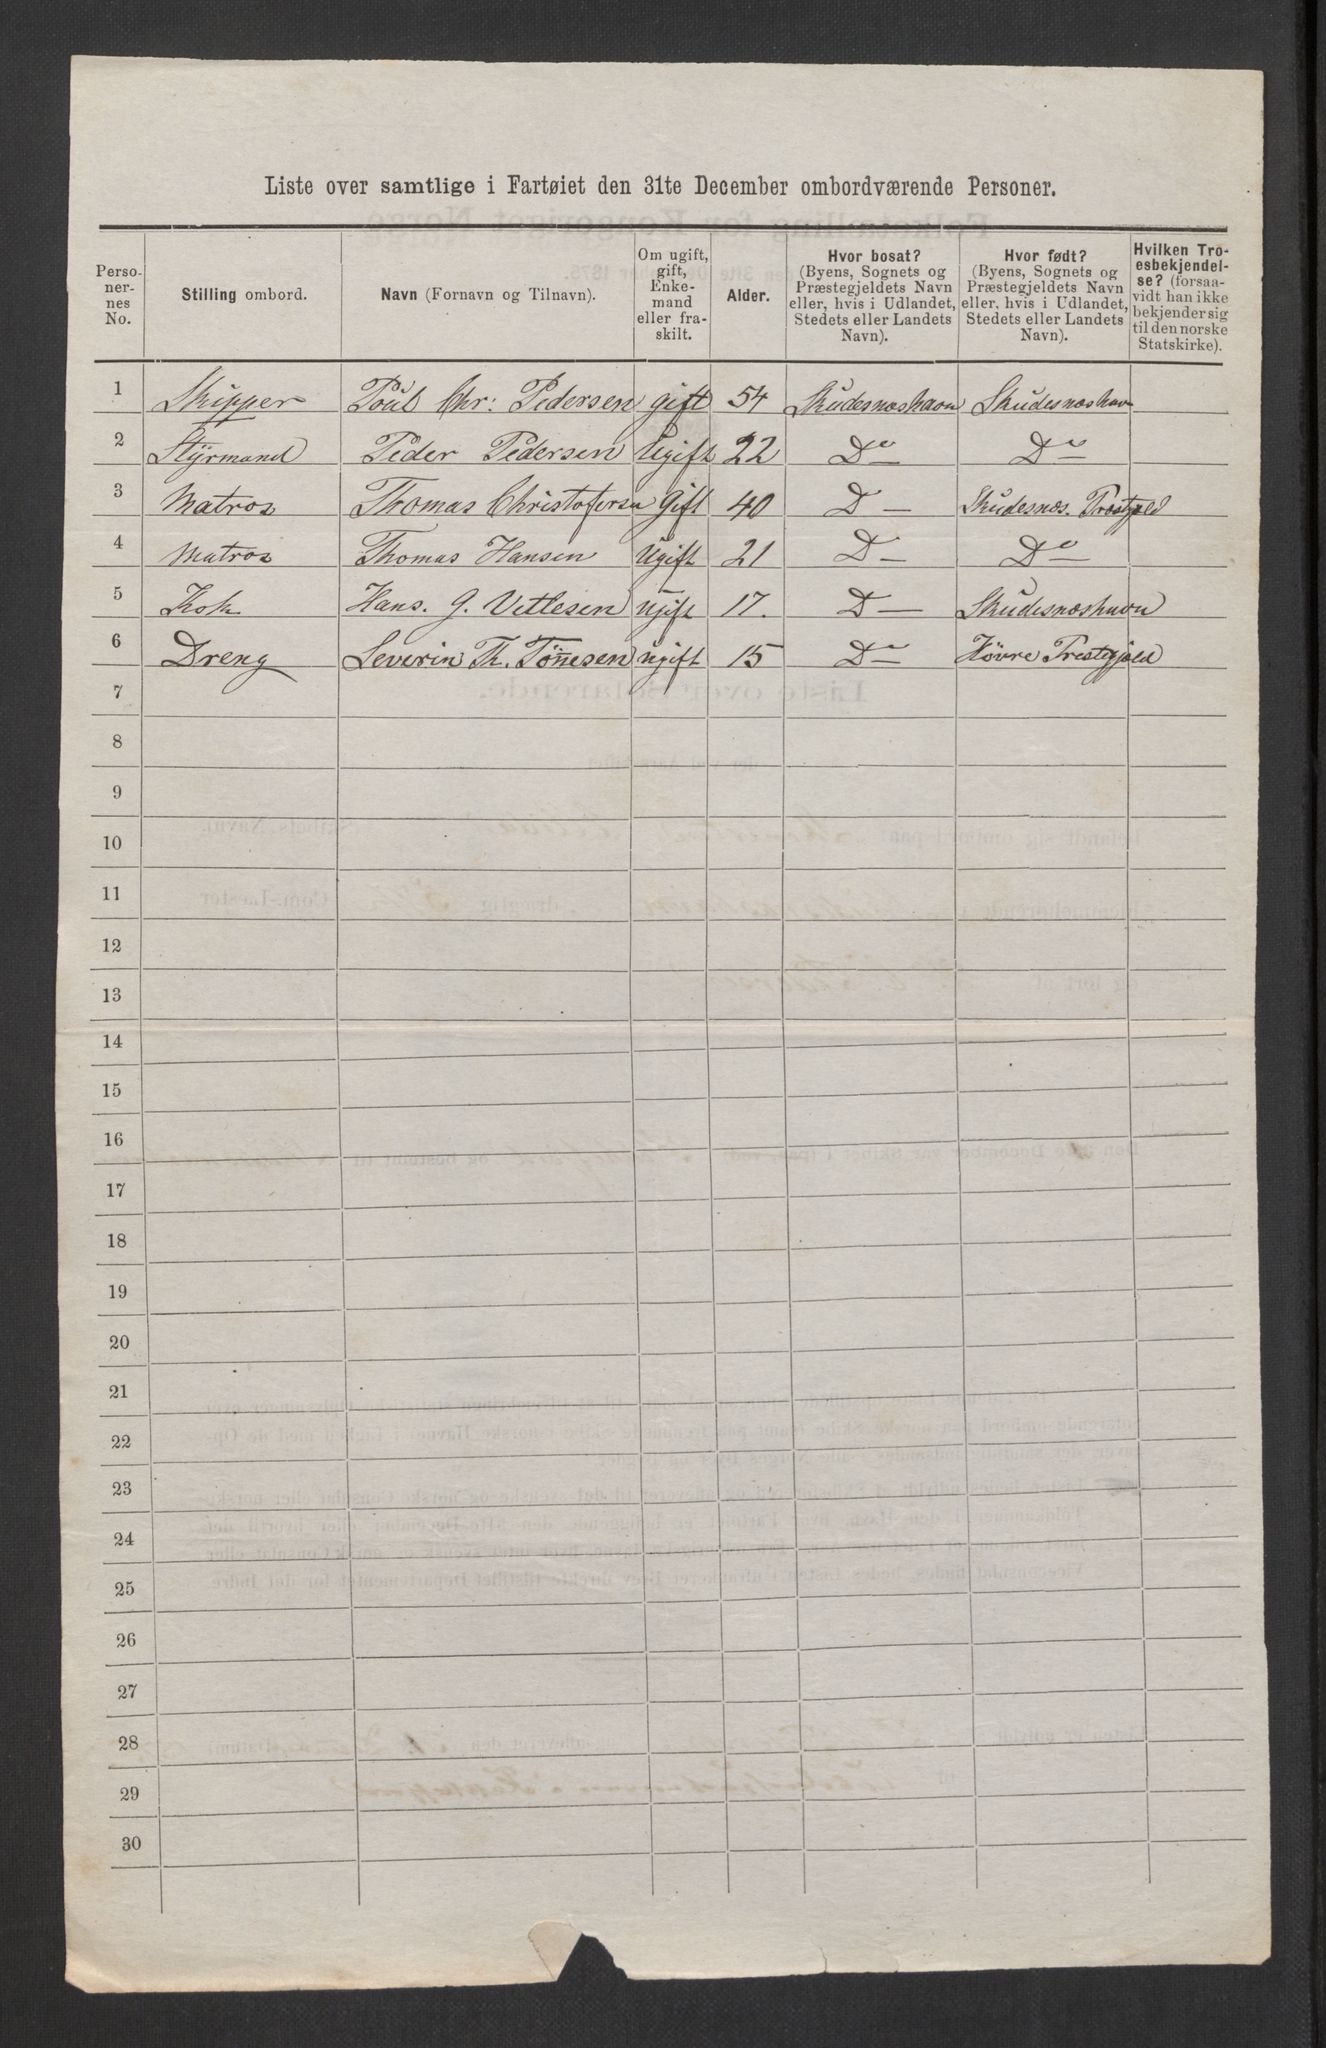 Liste over samtlige i Fartøiet den 31te December ombordværende Personer.
Perso-
ner-
nes
No.
Stilling ombord.
Navn (Fornavn og Tilnavn).
Om ugift,
gift,
Enke-
mand
eller fra-
skilt.
Alder.
Hvor bosat?
(Byens, Sognets og
Præstegjeldets Navn
eller, hvis i Udlandet,
Stedets eller Landets
Navn).
Hvor født?
(Byens, Sognets og
Præstegjeldets Navn
eller, hvis i Udlandet,
Stedets eller Landets
Navn).
Hvilken Tro-
esbekjendel-
se? (forsaa-
vidt han ikke
bekjender sig
til den norske
Statskirke).
1 Skipper Poul Chr: Pedersen gift 54 Skudesnæshavn Skudesnæshavn
2 Styrmand Peder Pedersen Ugift 22 Do Do
3 Matros Thomas Christofersn Gift 40 D — Skudesnæs. Præstgjeld
4 Matros Thomas Hansen Ugift 21 D — Do
5 Kok Hans. G. Vetlesen ugift 17. D — Skudesnæshavn
6 Dreng Severin Th. Tönnesen ugift 15 Do Prestegjeld
7
8
9
10
11
12
13
14
15
16
17
18
19
20
21
22
23
24
25
26
27
28
29
30